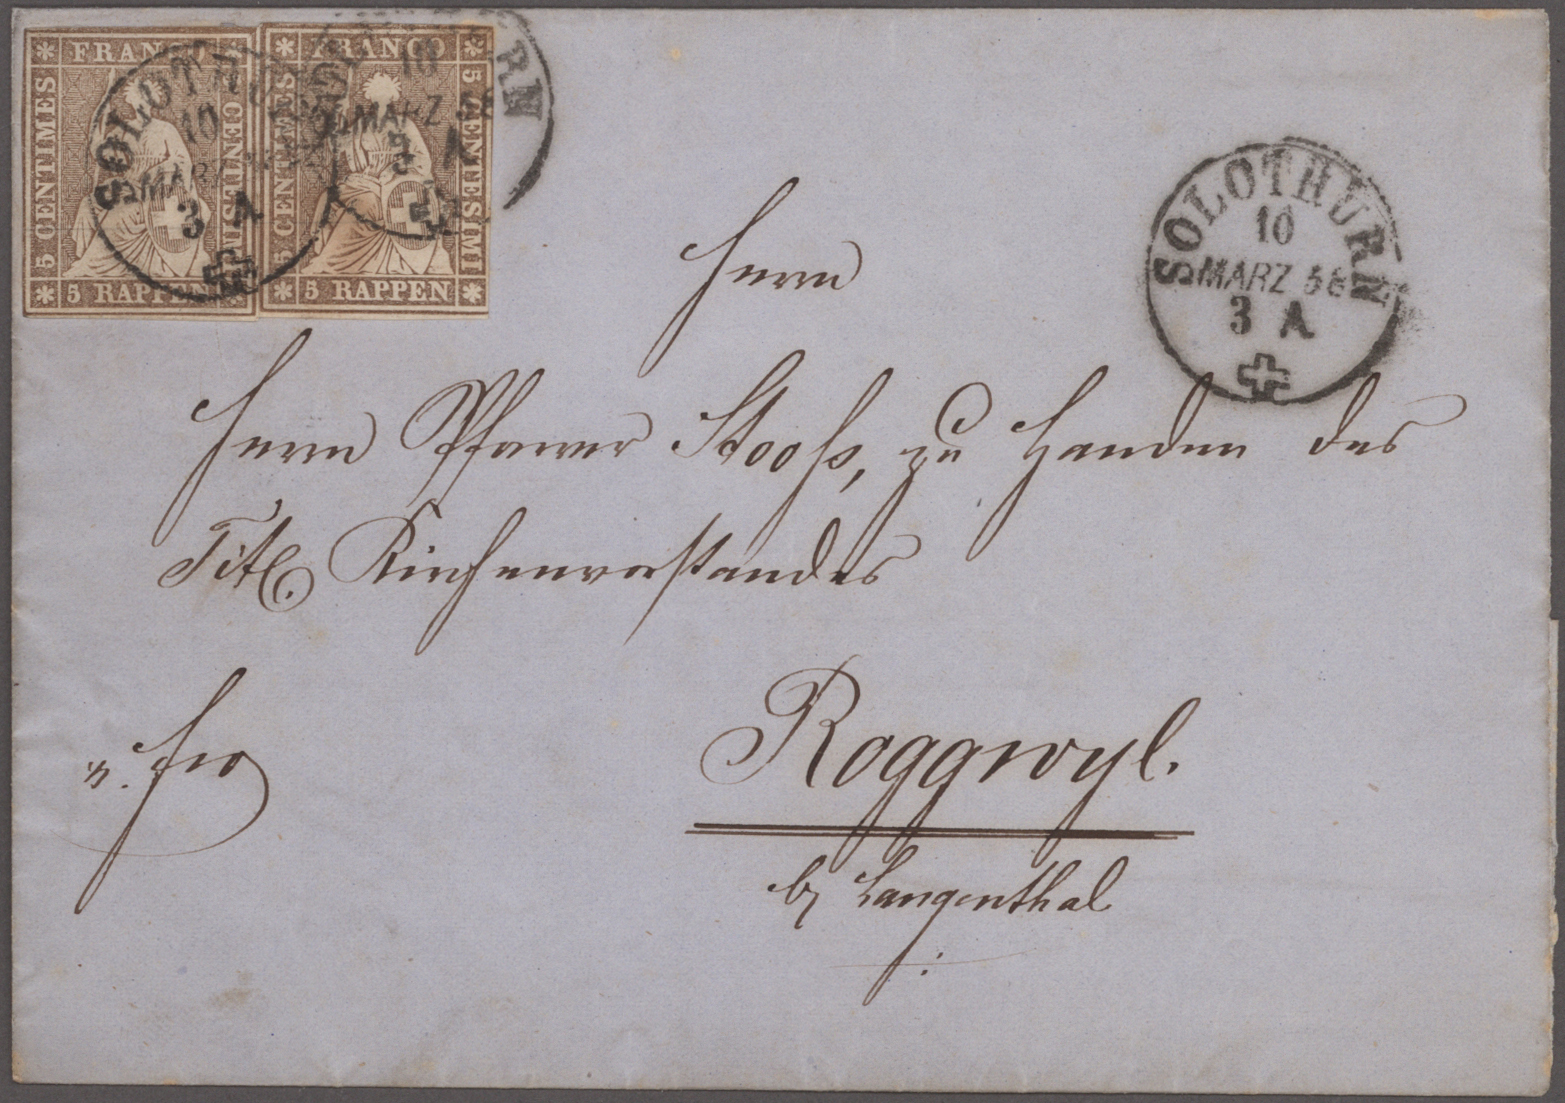 FRANCO
5 CENTIMES
5 CENTESIMI
5 RAPPEN
FRANCO
5 CENTIMES
5 CENTESIMI
5 RAPPEN
SOLOTHURN
10
MARZ
3 A
SOLOTHURN
10
MARZ 58
3 A
SOLOTHURN
10
MARZ 58
3 A
Herrn
Herrn Pfarrer Stooß, zu Handen des
Titl. Kirchenvorstandes
fro
Roggwyl.
by Langenthal